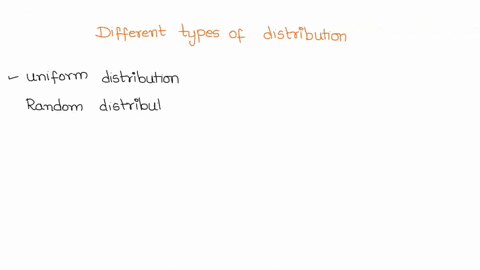 Different types of distribution
- uniform distribution
Random distribul